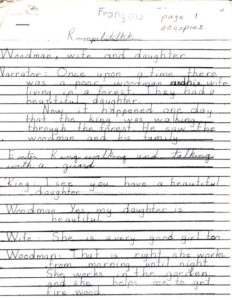 François page 1
20 copies
Woodman, wife and daughter
Narrator: Once upon a time there
was a poor woodman and his wife
living in a forest. They had a
beautiful daughter.
Now it happened one day
that the king was walking
through the forest. He saw the
woodman and his family.
Enter King walking and talking
with a guard
King: I see you have a beautiful
daughter
Woodman: Yes my daughter is
beautiful
Wife: She is a very good girl to
Woodman: That is right she works
from morning until night
She works in the garden
and she helps me to get
fire wood.